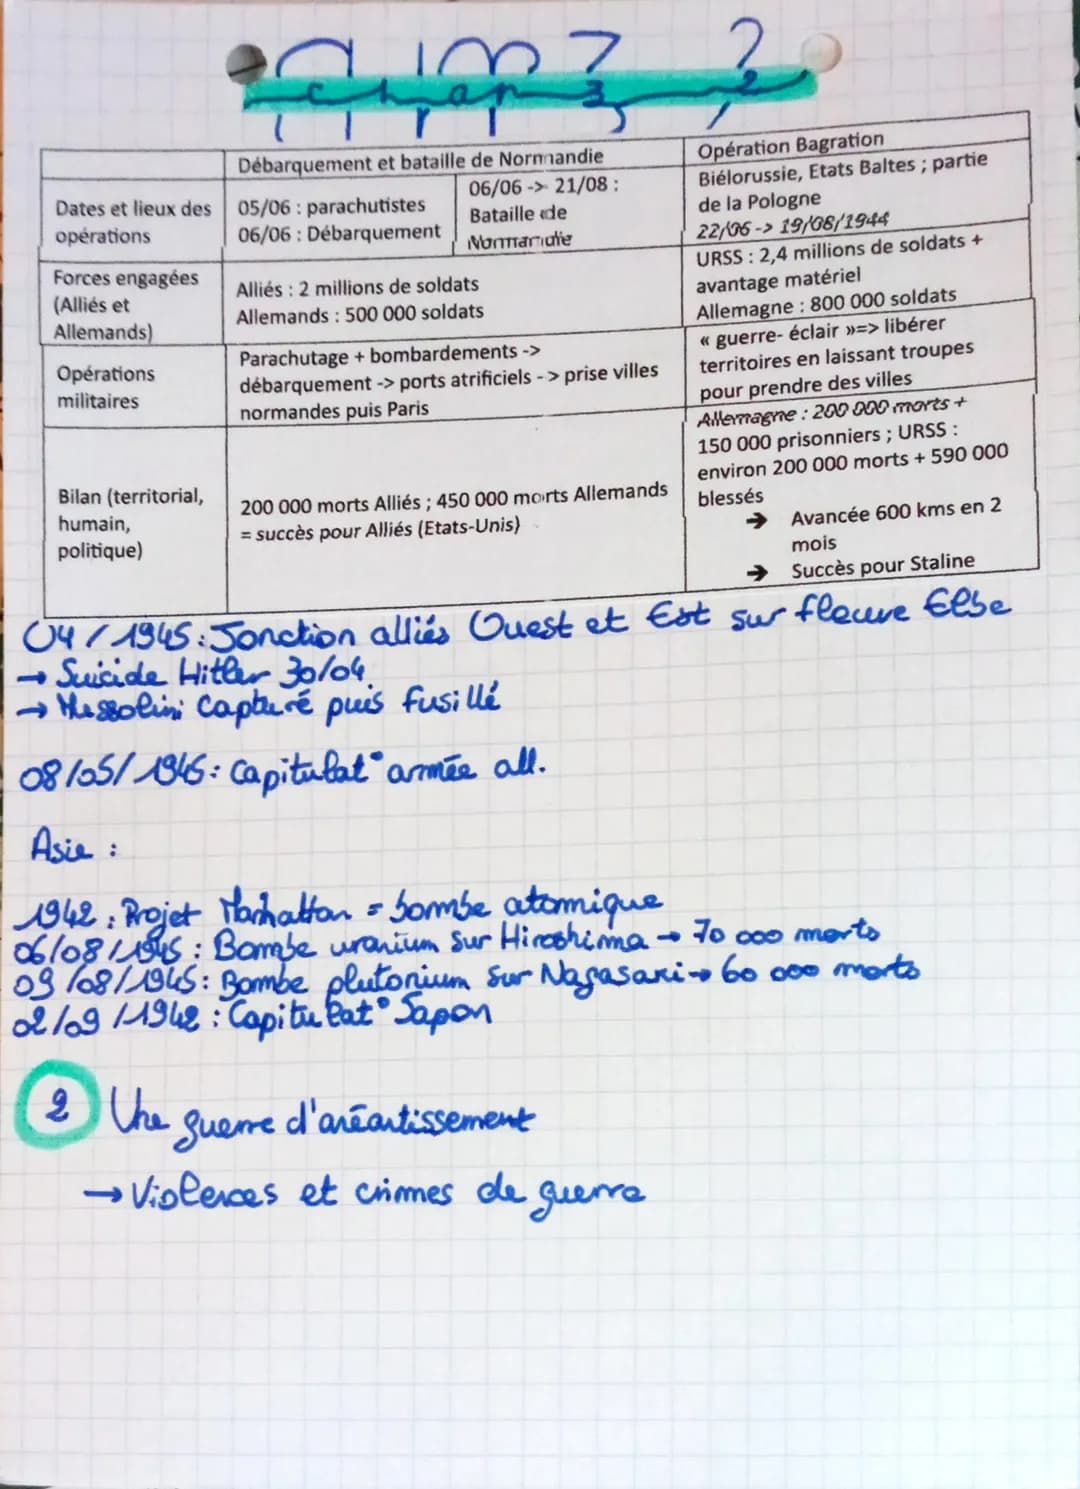 chap 3 2
Débarquement et bataille de Normandie
Opération Bagration
Dates et lieux des
opérations
05/06 : parachutistes
06/06 : Débarquement
06/06 -> 21/08 :
Bataille de
Normandie
Biélorussie, Etats Baltes ; partie
de la Pologne
22/06 -> 19/08/1944
Forces engagées
(Alliés et
Allemands)
Alliés : 2 millions de soldats
Allemands : 500 000 soldats
URSS : 2,4 millions de soldats +
avantage matériel
Allemagne : 800 000 soldats
Opérations
militaires
Parachutage + bombardements ->
débarquement -> ports atrificiels -> prise villes
normandes puis Paris
« guerre- éclair »=> libérer
territoires en laissant troupes
pour prendre des villes
Bilan (territorial,
humain,
politique)
200 000 morts Alliés ; 450 000 morts Allemands
= succès pour Alliés (Etats-Unis)
Allemagne : 200 000 morts +
150 000 prisonniers ; URSS :
environ 200 000 morts + 590 000
blessés
→ Avancée 600 kms en 2
mois
→ Succès pour Staline
04/1945 : Jonction alliés Ouest et Est sur fleuve Elbe
→ Suicide Hitler 30/04
→ Mussolini capturé puis fusillé
08/05/1945 : Capitulat° armée all.
Asie :
1942 : Projet Manhattan = bombe atomique
06/08/1945 : Bombe uranium sur Hiroshima → 70 000 morts
09/08/1945 : Bombe plutonium sur Nagasaki → 60 000 morts
02/09/1942 : Capitulat° Japon
2 Une guerre d'anéantissement
→ Violences et crimes de guerre